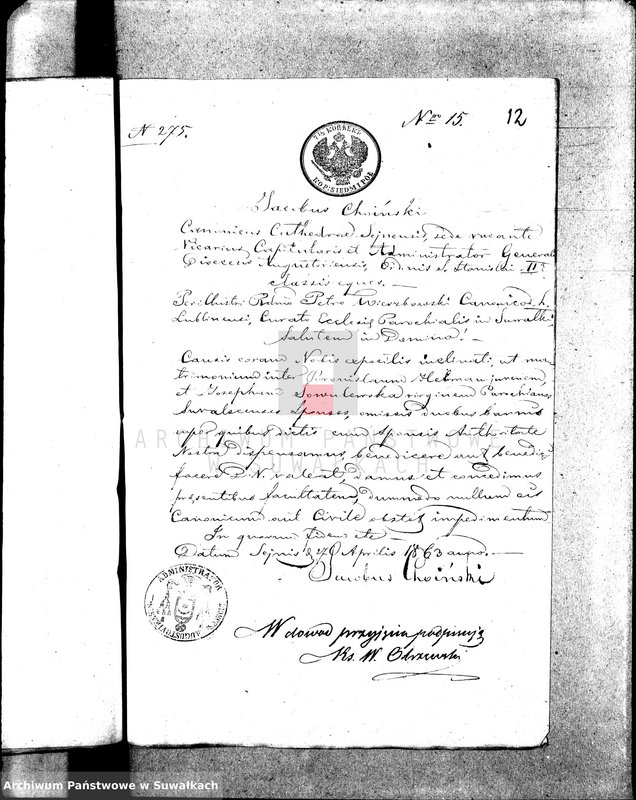 N 275.
Nro 15.
12
7½ KOPIEKI
KOP. SIEDM I PÓŁ
Jacobus Choiński
Canonicus Cathedral Sejnensis, sede vacante
Vicarius Capitularis et Administrator General
Dioecesis Augustoviensis, Ordinis S. Stanislai II
classis eques.
Perillustri Rdmo Petro Wierzbowski Canonico h.
Lublinensi, Curato Ecclesiæ Parochialis in Suwałki
Salutem in Domino!
Causis coram Nobis expositis inclinati, ut ma-
trimonium inter Bronislaum juvenem
et Josepham virginem Parochianos
Suvalscenses Sponsos, omissis duobus bannis
super quibus dictis cum Sponsis Authoritate
Nostra dispensamus, benedicere aut benedici
facere D. N. valeat, damus et concedimus
præsentibus facultatem, dummodo nullum eis
Canonicum aut Civile obstet impedimentum
In quorum fidem etc
Datum Sejnis Aprilis 1863 anno.
Jacobus Choiński
ADMINISTRATOR
W dowód przyjęcia podpisuję
Ks. W.
ARCHIWUM PAŃSTWOWE
W SUWAŁKACH
Archiwum Państwowe w Suwałkach